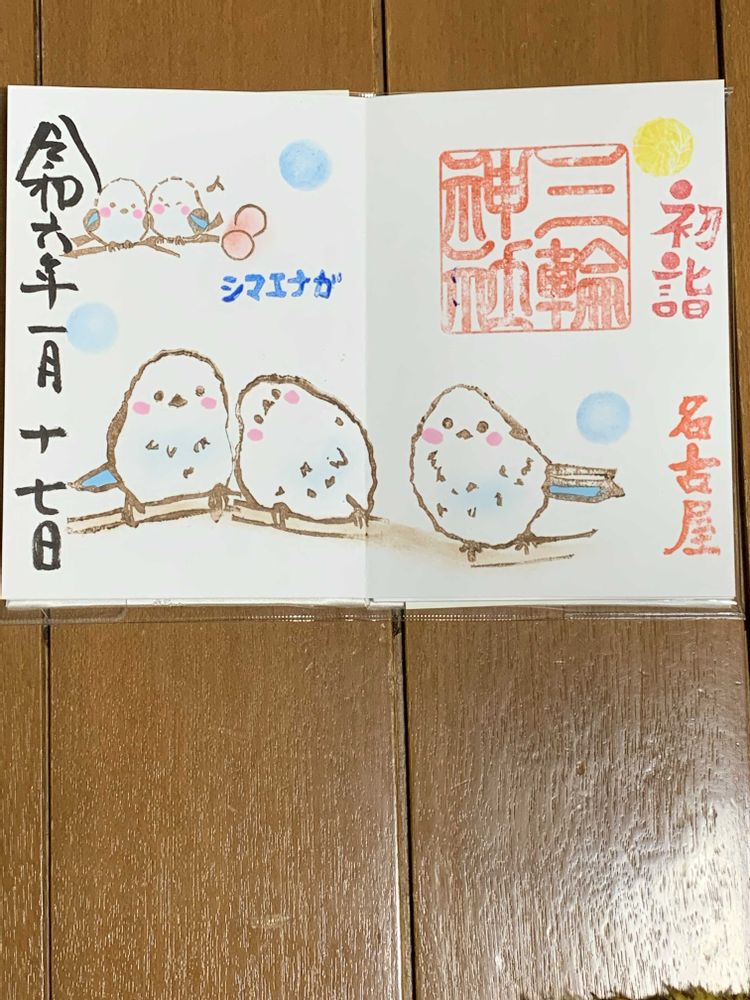 初詣
名古屋
三輪
神社
シマエナガ
令和六年一月十七日